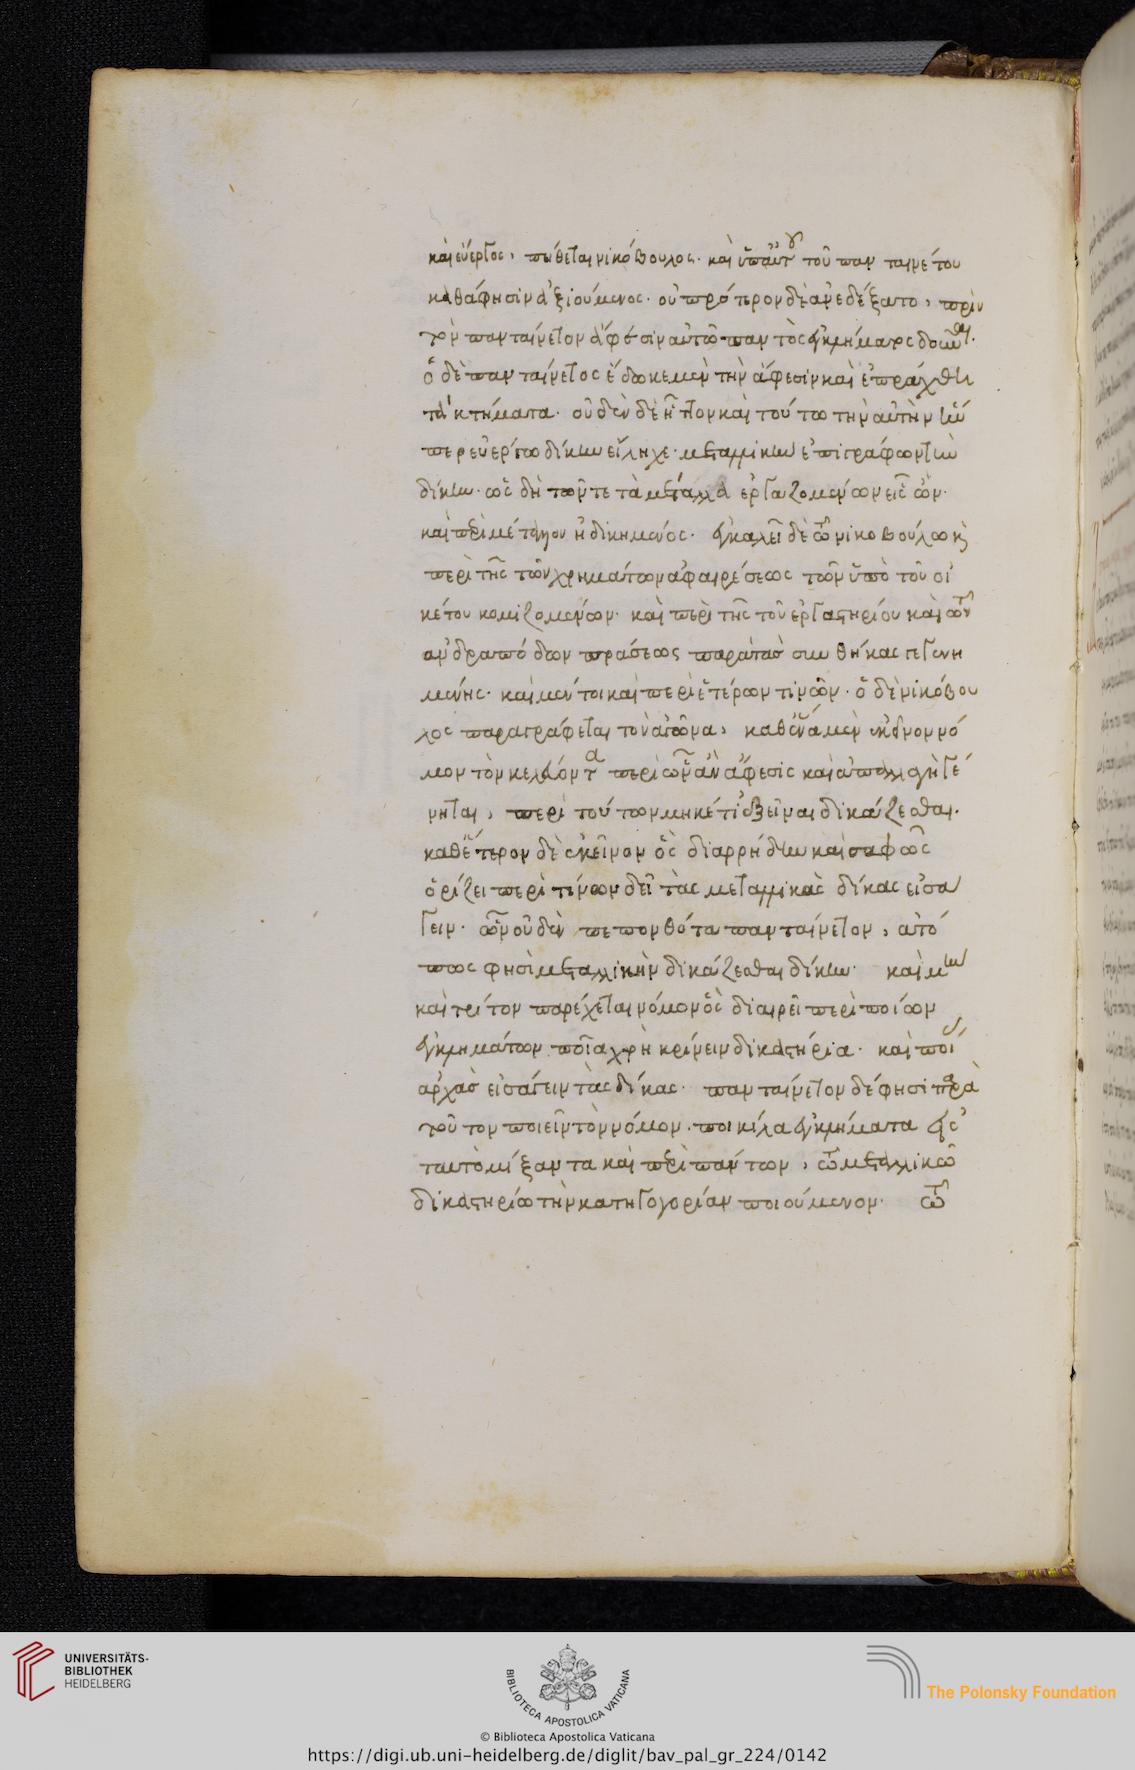 καὶ εὔεργος, πείθεται νικόβουλος· καὶ ὑπ' αὐτοῦ τοῦ πανταινέτου
καθά φησιν ἀξιούμενος· οὐ πρότερον δὲ ἀνεδέξατο, πρὶν
τὸν πανταίνετον ἄφεσιν αὐτῶ παντὸς ἐγκλήματος δοῦναι·
ὁ δὲ πανταίνετος ἔδωκε μὲν τὴν ἄφεσιν καὶ ἐπράχθη
τὰ κτήματα· οὐδὲν δὲ ἧττον καὶ τούτω τὴν αὐτὴν ἣν
περ εὐέργω δίκην εἴληχε· μεταλλικὴν ἐπιγραφὼν τὴν
δίκην· ὡς δὴ τῶν τε τὰ μέταλλα ἐργαζομένων εἷς ὢν·
καὶ περὶ μέταλλον ἠδικημένος· ἐγκαλεῖ δὲ τῶ νικοβούλω κ
περὶ τῆς τῶν χρημάτων ἀφαιρέσεως τῶν ὑπὸ τοῦ οἰ
κέτου κομιζομένων· καὶ περὶ τῆς τοῦ ἐργαστηρίου καὶ τῶν
ἀνδραπόδων πράσεως παρὰ τὰσ συνθήκας γεγενη
μένης· καὶ μέντοι καὶ περὶ ἑτέρων τινῶν· ὁ δὲ νικόβου
λος παραγράφεται τὸν ἀγῶνα, καθ' ἕνα μὲν ἐκεῖνον νό
μον τὸν κελεύοντα περὶ ὧν ἂν ἄφεσις καὶ ἀπαλλαγὴ γέ
νηται, περὶ τούτων μηκέτι ἐξεῖναι δικάζεσθαι·
καθ' ἕτερον δὲ ἐκεῖνον ὃς διαρρήδην καὶ σαφῶς
ὁρίζει περὶ τίνων δεῖ τὰς μεταλλικὰς δίκας εἰσά
γειν· ὧν οὐδὲν πεπονθότα πανταίνετον, ἀτό
πως φησὶ μεταλλικὴν δικάζεσθαι δίκην· καὶ μὴν
καὶ τρίτον παρέχεται νόμον ὃς διαιρεῖ περὶ ποίων
ἐγκλημάτων ποῖα χρὴ κρίνειν δικαστήρια· καὶ ποίας
ἀρχὰσ εἰσάγειν τὰς δίκας· πανταίνετον δέ φησι παρὰ
τοῦτον ποιεῖν τὸν νόμον· ποικίλα ἐγκλήματα ἐς
ταυτὸ μίξαντα καὶ περὶ πάντων, τῶ μεταλλικῶ
δικαστηρίω τὴν κατηγορίαν ποιούμενον· τῶ
UNIVERSITÄTS-
BIBLIOTHEK
HEIDELBERG
BIBLIOTECA APOSTOLICA VATICANA
The Polonsky Foundation
© Biblioteca Apostolica Vaticana
https://digi.ub.uni-heidelberg.de/diglit/bav_pal_gr_224/0142